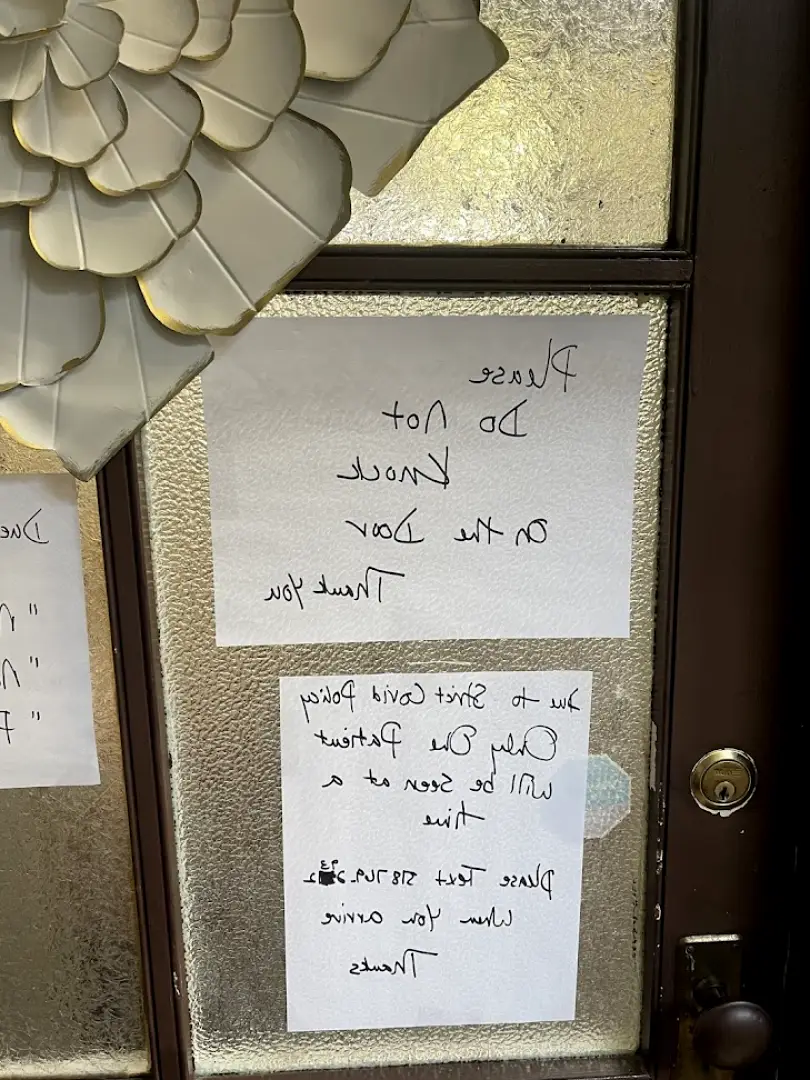 Please
Do Not
Knock
On the Door
Thank you
Due to Strict Covid Policy
Only One Patient
Will be Seen at a
time
Please Text 518 769
When you arrive
Thanks
Due
" N
" N
" F